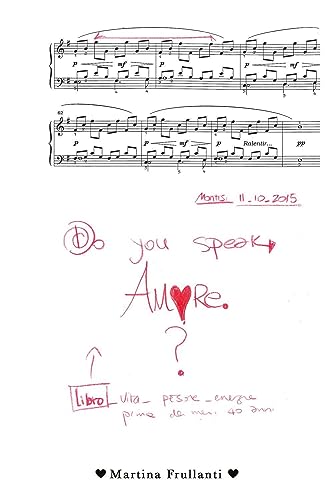 p mf p mf
62
p mf p mf Ralentir... pp
Montisi 11_10_2015
Do you speak
AMORE.
?
Libro_ vita_ pesare_energie
prima dei miei 40 anni
Martina Frullanti